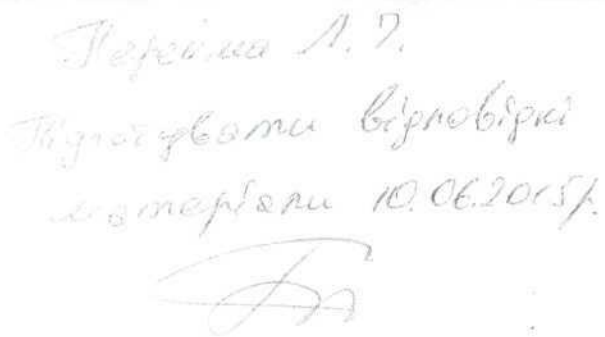 Перейма Л. П.
Підготувати відповідні
матеріали 10.06.2015р.